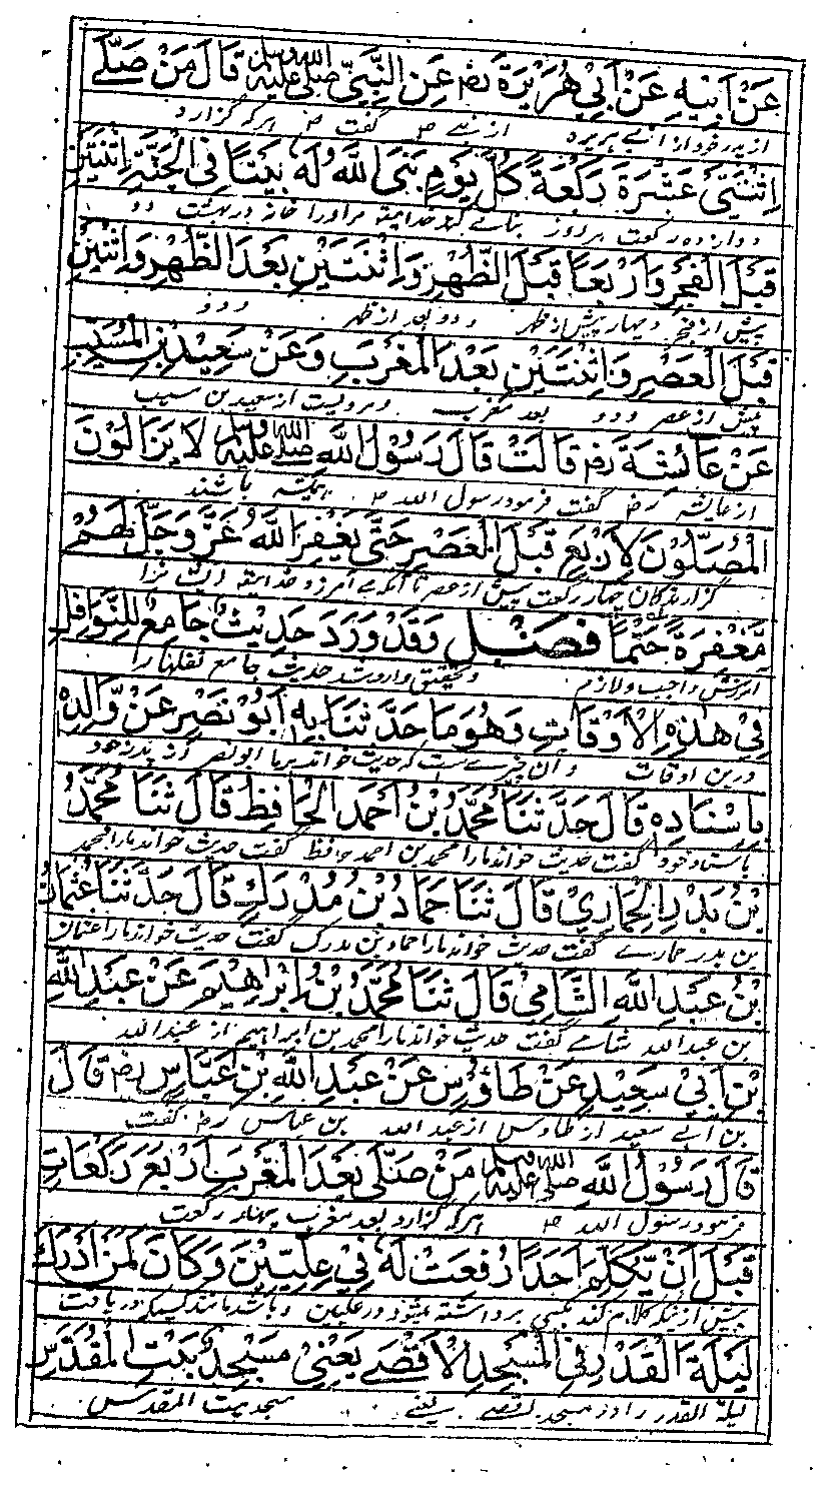 عَنْ اَبِيْهِ عَنْ اَبِيْ هُرَيْرَةَ رض عَنِ النَّبِيِّ صلى الله عليه وسلم قَالَ مَنْ صَلّٰے
از پدر خود از ابی ہریرہ از نبی ص گفت ص ہر کہ گزارد
اِثْنَتَيْ عَشْرَةَ رَكْعَةً كُلَّ يَوْمٍ بَنَى اللّٰهُ لَهٗ بَيْتًا فِي الْجَنَّةِ اِثْنَتَيْنِ
دوازدہ رکعت ہر روز بنا کند خدایتع مر او را خانہ در بہشت دو
قَبْلَ الْفَجْرِ وَاَرْبَعًا قَبْلَ الظُّهْرِ وَاِثْنَتَيْنِ بَعْدَ الظُّهْرِ وَاِثْنَيْنِ
پیش از فجر و چہار پیش از ظہر و دو بعد از ظہر و دو
قَبْلَ الْعَصْرِ وَاِثْنَتَيْنِ بَعْدَ الْمَغْرِبِ وَعَنْ سَعِيْدِ بْنِ الْمُسَيِّبِ
پیش از عصر و دو بعد مغرب و مرویست از سعید بن مسیب
عَنْ عَائِشَةَ رض قَالَتْ قَالَ رَسُوْلُ اللّٰهِ صلى الله عليه وسلم لَا يَزَالُوْنَ
از عایشہ رض گفت فرمود رسول اللہ ص ہمیشہ باشند
الْمُصَلُّوْنَ لِاَرْبَعٍ قَبْلَ الْعَصْرِ حَتّٰى يَغْفِرَ اللّٰهُ عَزَّ وَجَلَّ لَهُمْ
گزارندگان چہار رکعت پیش از عصر تا آنکہ بیامرزد خدایتع ایشانرا
مَّغْفِرَةً حَتْمًا فَصْل وَقَدْ وَرَدَ حَدِيْثٌ جَامِعٌ لِلنَّوَافِلِ
آمرزش واجب و لازم و بتحقیق وارد شد حدیث جامع نفلہا را
فِيْ هٰذِهِ الْاَوْقَاتِ وَهُوَ مَا حَدَّثَنَا بِهٖ اَبُوْ نَصْرٍ عَنْ وَّالِدِهٖ
درین اوقات و آن چیزے ست کہ حدیث خواند بر ما ابو نصر از پدر خود
بِاِسْنَادِهٖ قَالَ حَدَّثَنَا مُحَمَّدُ بْنُ اَحْمَدَ الْحَافِظُ قَالَ ثَنَا مُحَمَّدُ
باسناد خود گفت حدیث خواند ما را محمد بن احمد حافظ گفت حدیث خواند ما را محمد
بْنُ بَدْرِ الْحِمَارِيْ قَالَ ثَنَا حَمَادُ بْنُ مُدْرَكٍ قَالَ حَدَّثَنَا عُثْمَانُ
بن بدر حمارے گفت حدیث خواند ما را حماد بن مدرک گفت حدیث خواند ما را عثمان
بْنُ عَبْدِ اللّٰهِ الشَّامِيْ قَالَ ثَنَا مُحَمَّدُ بْنُ اِبْرَاهِيْمَ عَنْ عَبْدِ اللّٰهِ
بن عبد اللہ شامے گفت حدیث خواند ما را محمد بن ابراہیم از عبد اللہ
بْنِ اَبِيْ سَعِيْدٍ عَنْ طَاوُسٍ عَنْ عَبْدِ اللّٰهِ بْنِ عَبَّاسٍ رض قَالَ
بن ابی سعید از طاوس از عبد اللہ بن عباس رض گفت
قَالَ رَسُوْلُ اللّٰهِ صلى الله عليه وسلم مَنْ صَلّٰى بَعْدَ الْمَغْرِبِ اَرْبَعَ رَكَعَاتٍ
فرمود رسول اللہ ص ہر کہ گزارد بعد مغرب چہار رکعت
قَبْلَ اَنْ يُّكَلِّمَ اَحَدًا رُفِعَتْ لَهٗ فِيْ عِلِّيِّيْنَ وَكَانَ كَمَنْ اَدْرَكَ
پیش از آنکہ کلام کند بکسی برداشتہ میشود در علیین و باشد مانند کسیکہ دریافت
لَيْلَةَ الْقَدْرِ فِي الْمَسْجِدِ الْاَقْصٰے يَعْنِيْ مَسْجِدَ بَيْتِ الْمُقَدَّسِ
لیلۃ القدر را در مسجد اقصے یعنے مسجد بیت المقدس